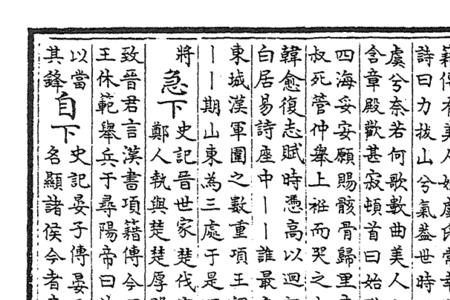 有美人姓虞氏常幸
詩曰力拔山兮氣蓋世時
虞兮奈若何歌數曲美人
含章殿歡甚寂頓首曰始
四海妥安願賜骸骨歸里
叔死管仲舉上袵而哭之
韓愈復志賦時憑高以迴
白居易詩座中｜｜誰最
東城漢軍圍之數重項王
｜｜期山東為三處于是
將
急下
史記晉世家楚伐
鄭人執與楚楚厚
致晉君言漢書項籍傳今
王休範舉兵于尋陽帝曰
以當
其鋒
自下
史記晏子傳晏子
名顯諸侯今者